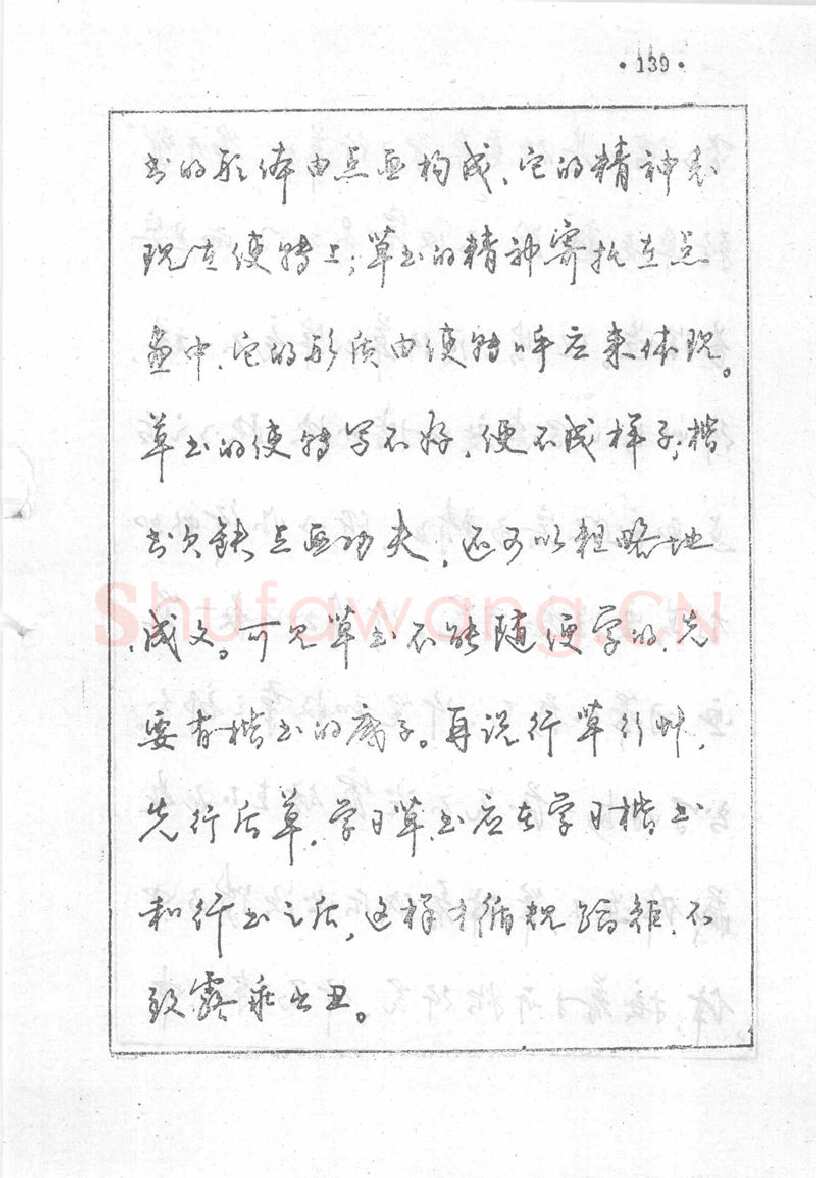 ·139·
书的形体由点画构成、它的精神表
现在使转上；草书的精神寄托在点
画中、它的形质由使转呼应来体现。
草书的使转写不好，便不成样子；楷
书欠缺点画功夫，还可以粗略地
成文。可见草书不能随便写的，先
要有楷书的底子。再说行草行草，
先行后草，学习草书应在学习楷书
和行书之后，这样才循规蹈矩、不
致露乖出丑。
Shufawang.CN